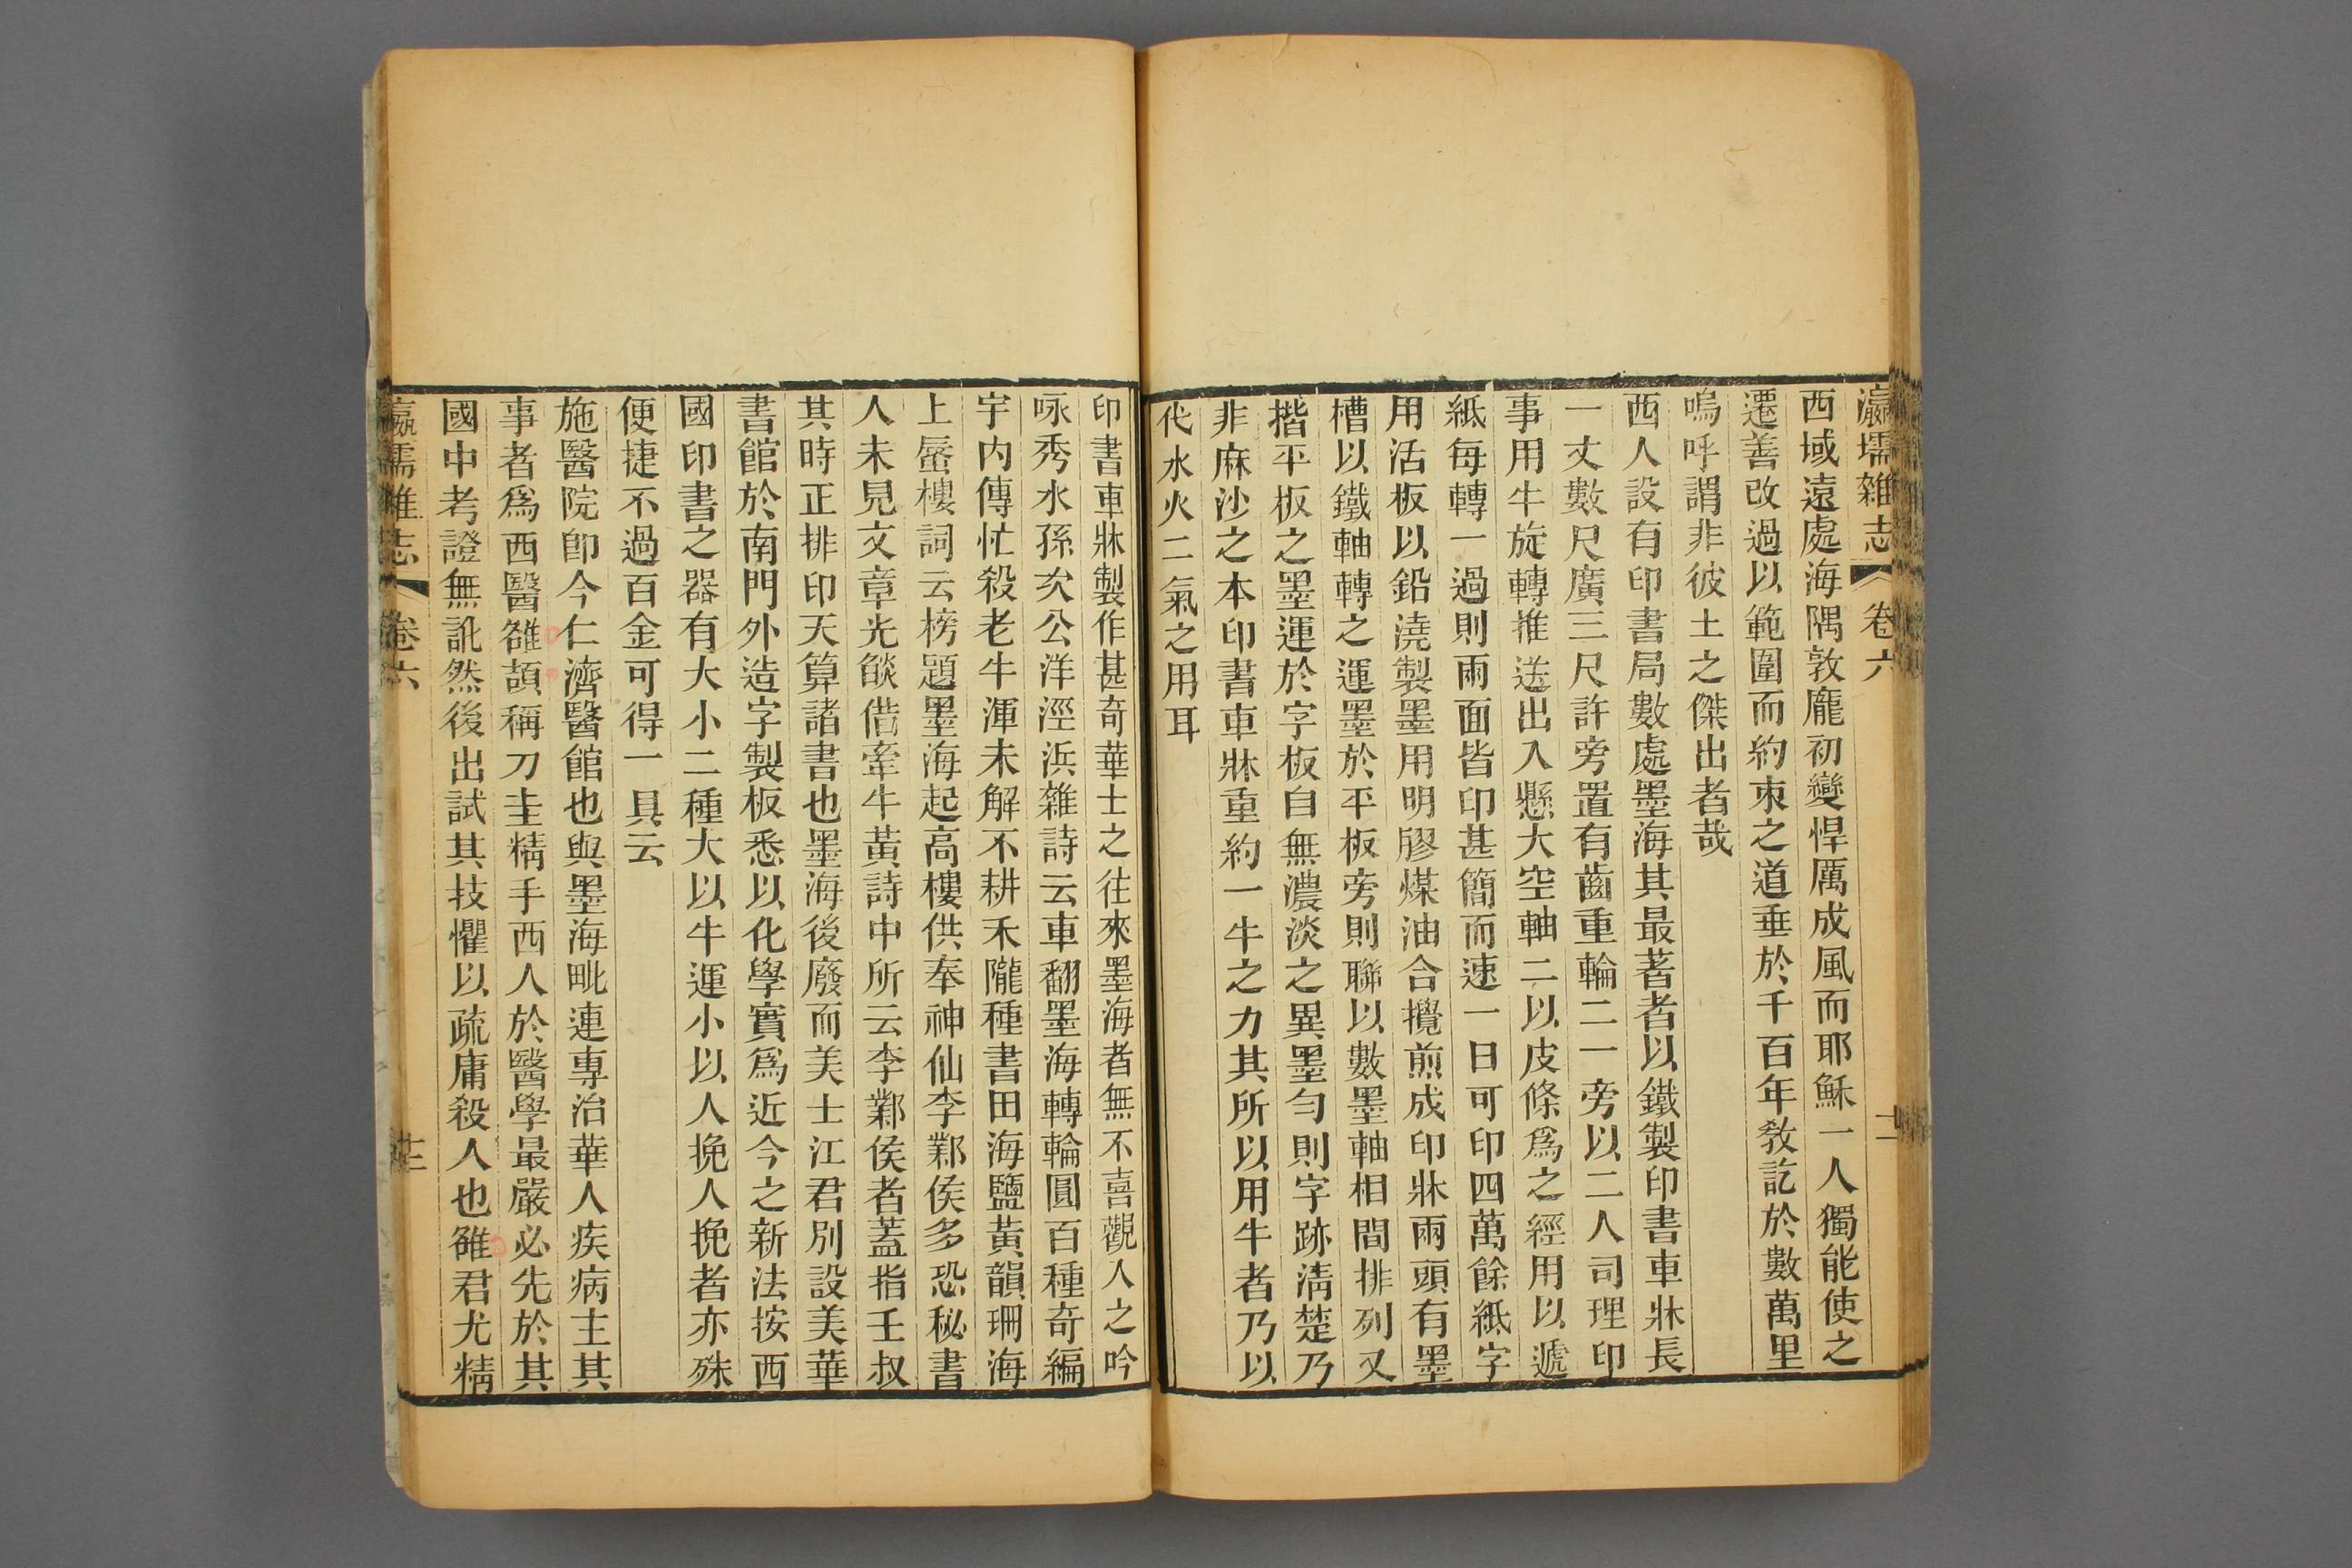 瀛壖雜志 卷六 十二
西域遠處海隅敦龐初變悍厲成風而耶穌一人獨能使之
遷善改過以範圍而約束之道垂於千百年教訖於數萬里
嗚呼謂非彼土之傑出者哉
西人設有印書局數處墨海其最著者以鐵製印書車牀長
一丈數尺廣三尺許旁置有齒重輪二一旁以二人司理印
事用牛旋轉推送出入懸大空軸二以皮條爲之經用以遞
紙每轉一過則兩面皆印甚簡而速一日可印四萬餘紙字
用活板以鉛澆製墨用明膠煤油合攪煎成印牀兩頭有墨
槽以鐵軸轉之運墨於平板旁則聯以數墨軸相間排列又
揩平板之墨運於字板自無濃淡之異墨勻則字跡淸楚乃
非麻沙之本印書車牀重約一牛之力其所以用牛者乃以
代水火二氣之用耳
印書車牀製作甚奇華士之往來墨海者無不喜觀人之吟
咏秀水孫次公洋涇浜雜詩云車翻墨海轉輪圓百種奇編
宇內傳忙殺老牛渾未解不耕禾隴種書田海鹽黃韻珊海
上蜃樓詞云榜題墨海起高樓供奉神仙李鄴侯多恐秘書
人未見文章光燄借牽牛黃詩中所云李鄴侯者蓋指壬叔
其時正排印天算諸書也墨海後廢而美士江君別設美華
書館於南門外造字製板悉以化學實爲近今之新法按西
國印書之器有大小二種大以牛運小以人挽人挽者亦殊
便捷不過百金可得一具云
施醫院卽今仁濟醫館也與墨海毗連專治華人疾病主其
事者爲西醫雒頡稱刀圭精手西人於醫學最嚴必先於其
國中考證無訛然後出試其技懼以疏庸殺人也雒君尤精
瀛壖雜志 卷六 十三